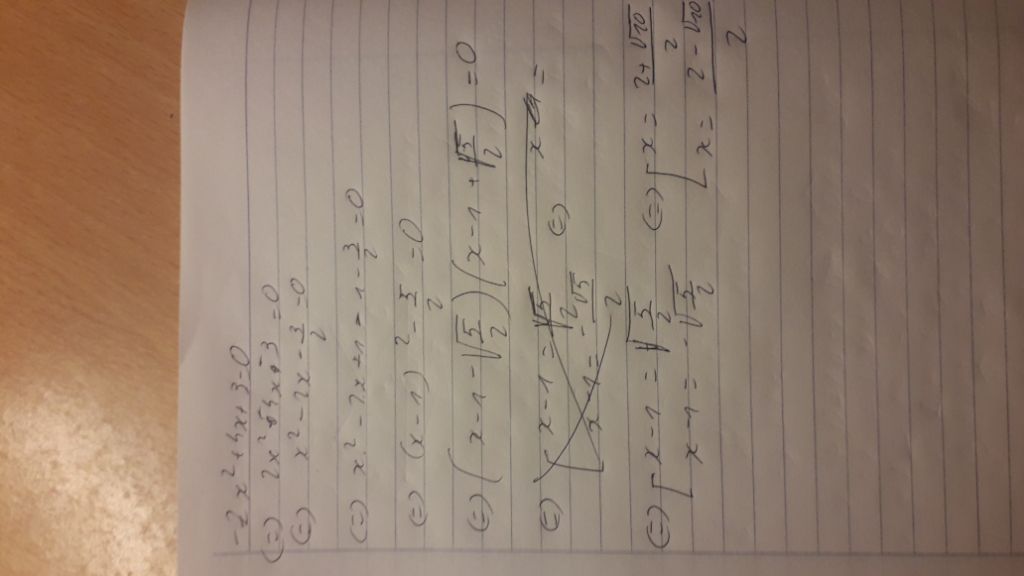 -2x²+4x+3=0
(=) 2x²-4x-3=0
(=) x²-2x-3/2=0
(=) x²-2x+1-1-3/2=0
(=) (x-1)²-5/2=0
(=) (x-1-√(5/2))(x-1+√(5/2))=0
(=) [x-1=√5/2 (=) x =
[x-1=-√5/2
(=) [x-1=√(5/2) (=) [x=(2+√10)/2
[x-1=-√(5/2) [x=(2-√10)/2